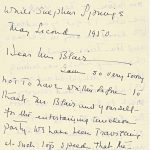 White Sulphur Springs
May Second, 1950.
Dear Mrs Blair
I am so very sorry
not to have written before to
thank Mr Blair and yourself
for the entertaining luncheon
party. We have been travelling
at such top speed that he